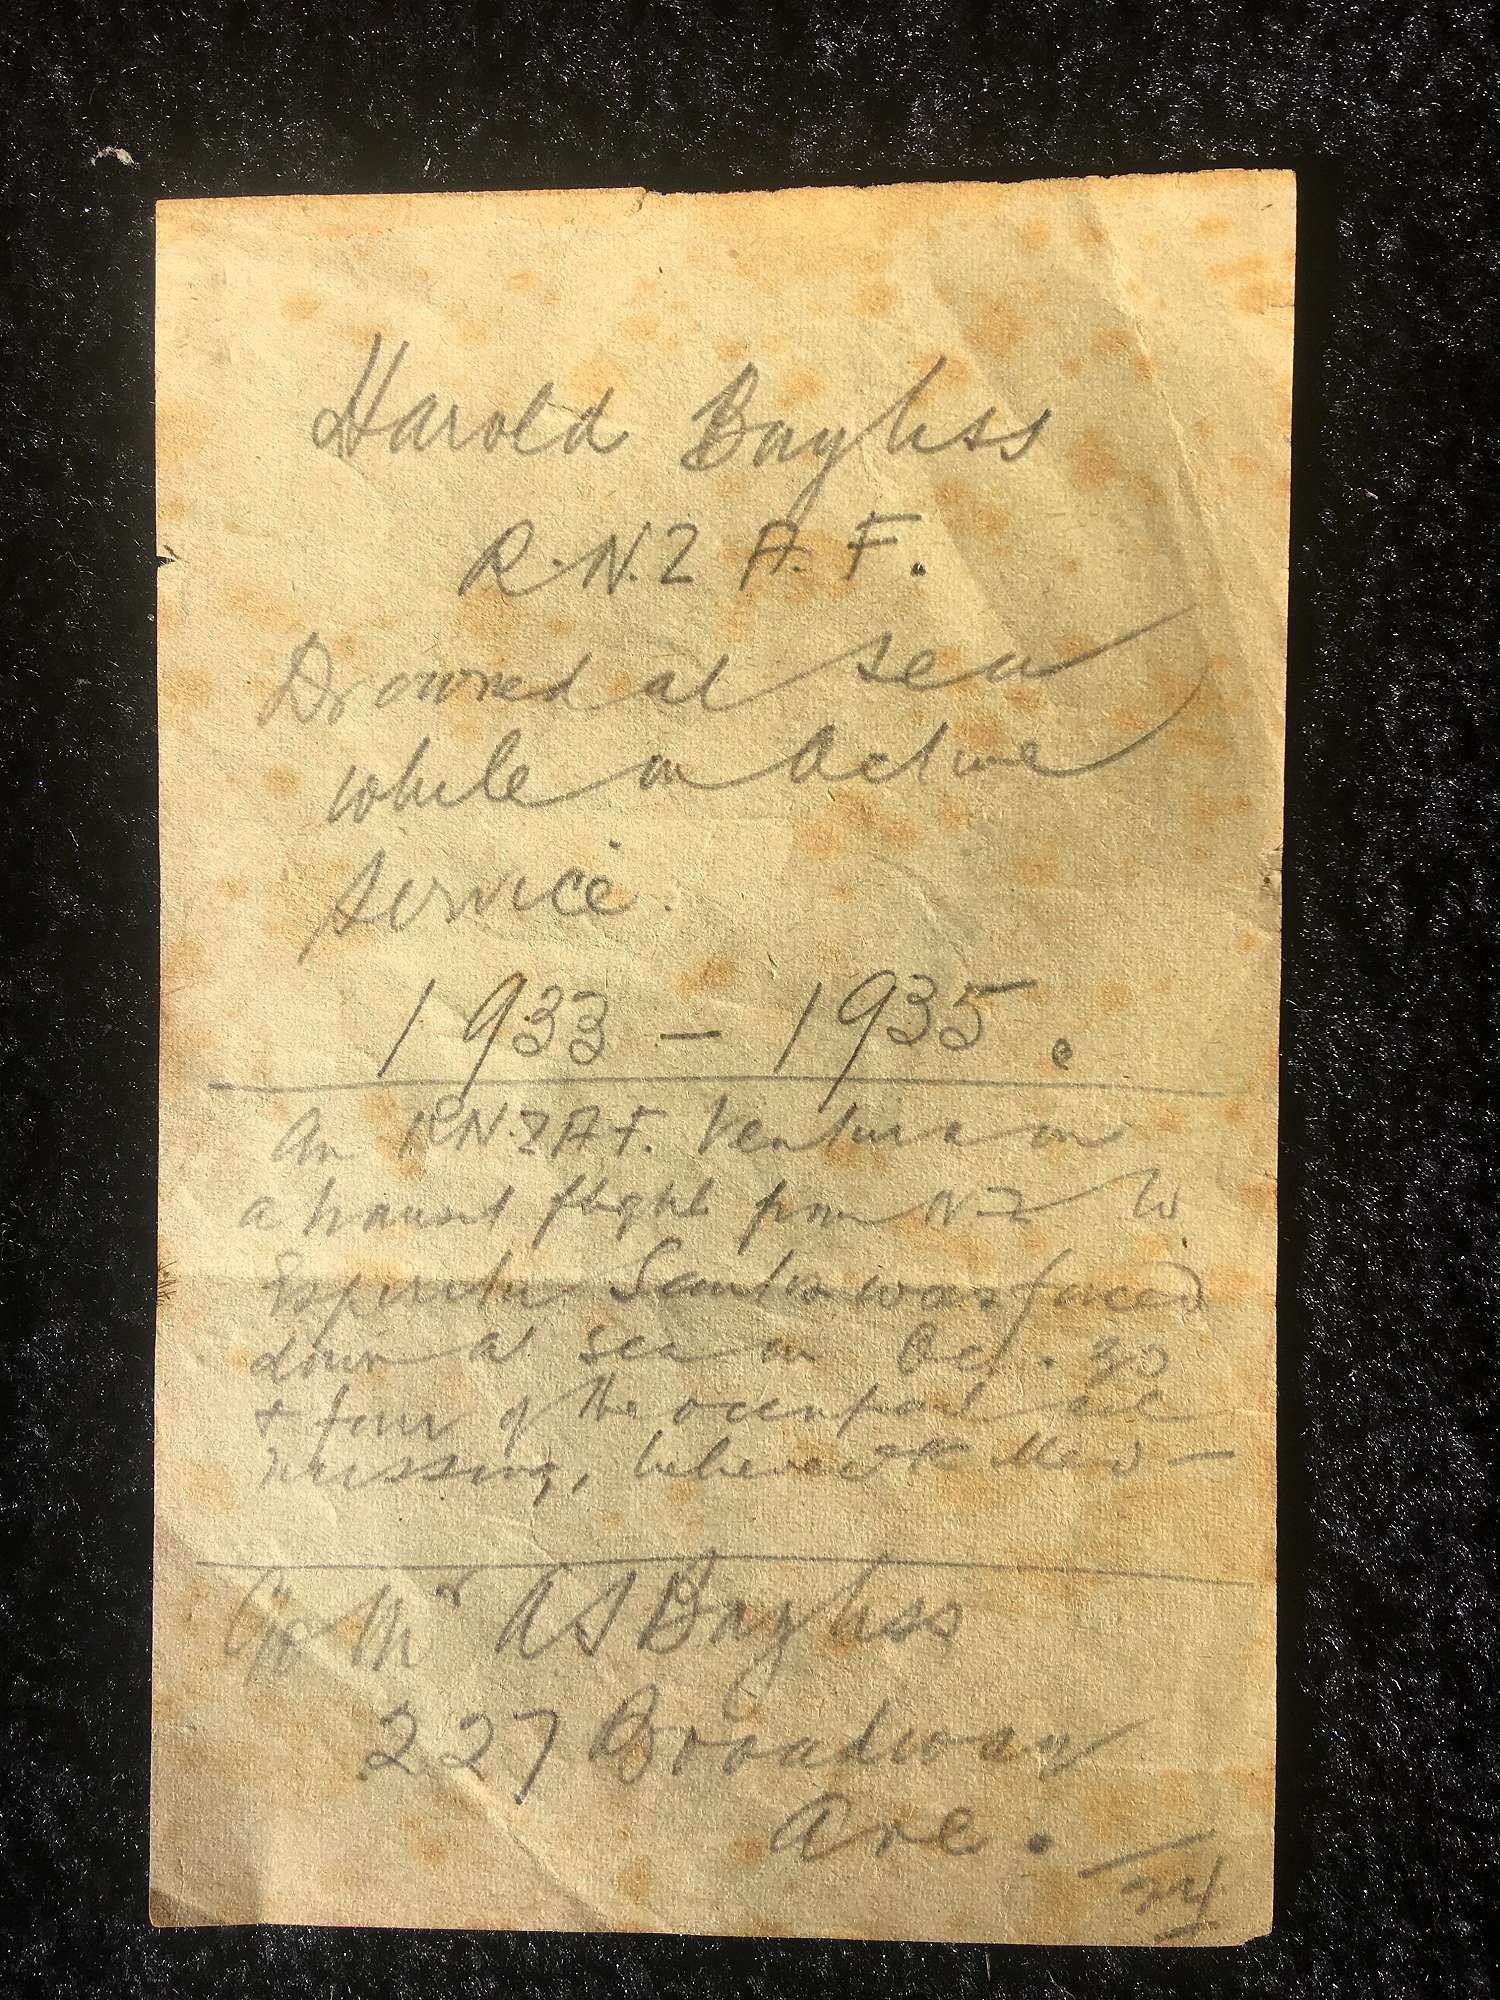 Harold Bayliss
R.N.Z A. F.
Drowned at sea
while on active
service.
1933 - 1935.
An R.N.Z.A.F. Ventura on
a transit flight from N-Z to
Espiritu Santo was forced
down at sea on Oct. 30
& four of the occupants are
missing, believed dead -
C/o Mr A S Bayliss
227 Broadway
Ave.